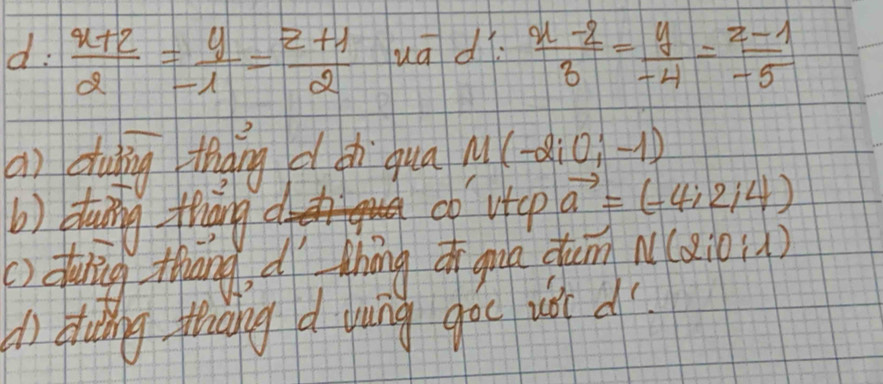 d: \frac{x+2}{2} = \frac{y}{-1} = \frac{z+1}{2} và d': \frac{x-2}{3} = \frac{y}{-4} = \frac{z-1}{-5}
a) đường thẳng d đi qua M(-2;0;-1)
b) đường thẳng d có vtcp \vec{a} = (-4;2;4)
c) đường thẳng d' không đi qua điểm N(2;0;1)
d) đường thẳng d vuông góc với d'.